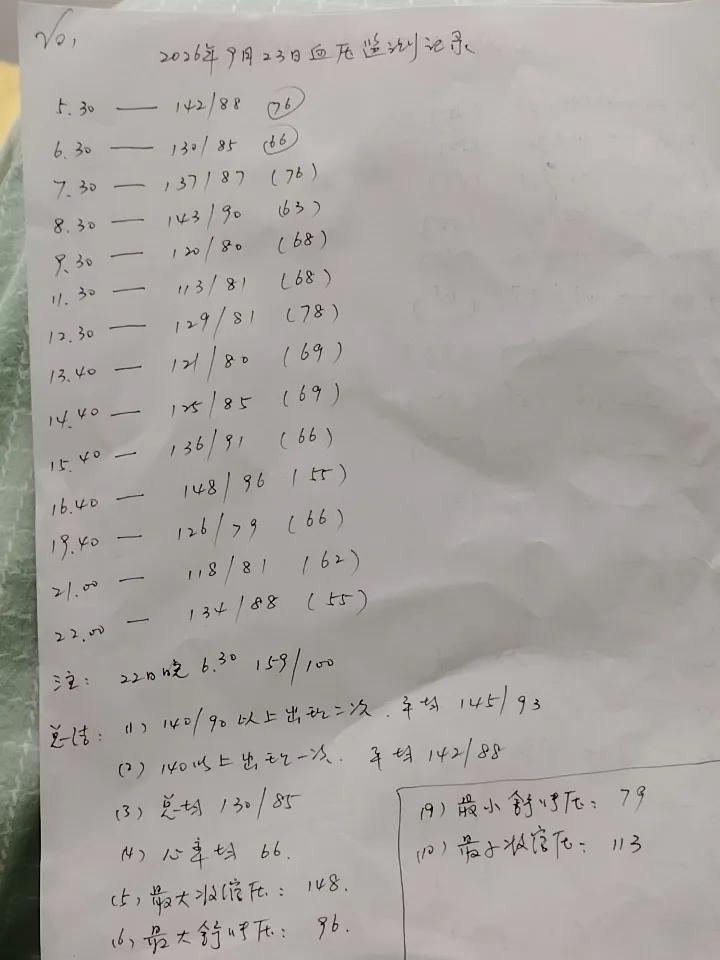 No1
2026年9月23日血压监测记录
5.30 — 142/88 (76)
6.30 — 130/85 (66)
7.30 — 137/87 (76)
8.30 — 143/90 (63)
9.30 — 120/80 (68)
11.30 — 113/81 (68)
12.30 — 129/81 (78)
13.40 — 121/80 (69)
14.40 — 125/85 (69)
15.40 — 136/91 (66)
16.40 — 148/96 (55)
19.40 — 126/79 (66)
21.00 — 118/81 (62)
22.00 — 134/88 (55)
注: 22日晚 6.30 159/100
总结: (1) 140/90以上出现二次. 平均 145/93
(2) 140以上出现一次. 平均 142/88
(3) 总均 130/85
(4) 心率均 66.
(5) 最大收缩压: 148.
(6) 最大舒张压: 96.
(9) 最小舒张压: 79
(10) 最小收缩压: 113